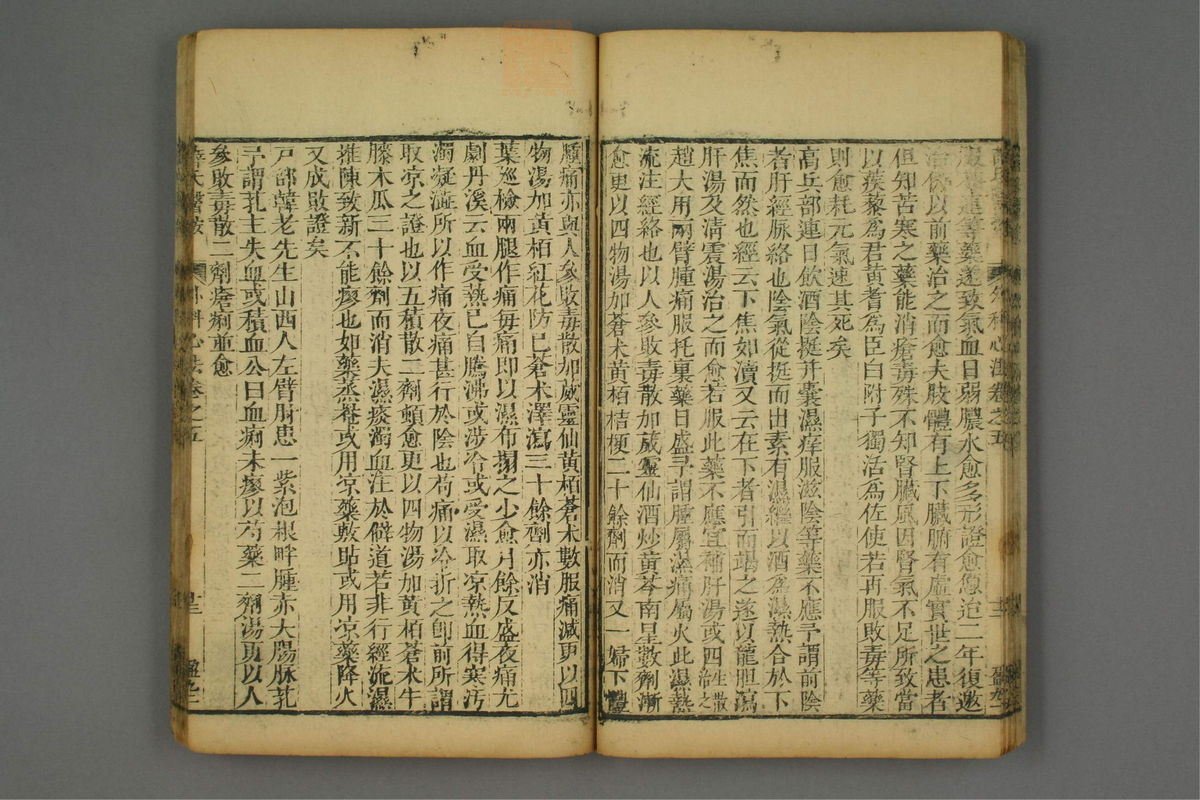 薛氏醫案 外科心法卷之五
服黃連等藥遂致氣血日弱膿水愈多形證愈憊迨二年復邀
治仍以前藥治之而愈夫肢體有上下臟腑有虛實世之患者
但知苦寒之藥能消瘡毒殊不知腎臟風因腎氣不足所致當
以蒺藜爲君黃耆爲臣白附子獨活爲佐使若再服敗毒等藥
則愈耗元氣速其死矣
高兵部連日飲酒陰挺并囊濕痒服滋陰等藥不應予謂前陰
者肝經脉絡也陰氣從挺而出素有濕繼以酒爲濕熱合於下
焦而然也經云下焦如瀆又云在下者引而竭之遂以龍胆瀉
肝湯及清震湯治之而愈若服此藥不應宜補肝湯或四生散治之
趙大用兩臂腫痛服托裏藥日盛予謂腫屬濕痛屬火此濕熱
流注經絡也以人參敗毒散加葳靈仙酒炒黃芩南星數劑漸
愈更以四物湯加蒼术黃栢桔梗二十餘劑而消又一婦下體
腫痛亦與人參敗毒散加葳靈仙黃栢蒼术數服痛減更以四
物湯加黃栢紅花防已蒼术澤瀉三十餘劑亦消
葉巡檢兩腿作痛每痛即以濕布搨之少愈月餘反盛夜痛尤
劇丹溪云血受熱已自騰沸或涉冷或受濕取凉熱血得寒汚
濁凝澁所以作痛夜痛甚行於陰也苟痛以冷折之卽前所謂
取凉之證也以五積散二劑頓愈更以四物湯加黃栢蒼术牛
膝木瓜三十餘劑而消夫濕痰濁血注於僻道若非行經流濕
推陳致新不能瘳也如藥蒸罨或用凉藥敷貼或用凉藥降火
又成敗證矣
戸部韓老先生山西人左臂肘患一紫泡根畔腫赤大腸脉芤
予謂芤主失血或積血公曰血痢未瘳以芍藥二劑湯更以人
參敗毒散二劑瘡痢並愈
薛氏醫案 外科心法卷之五